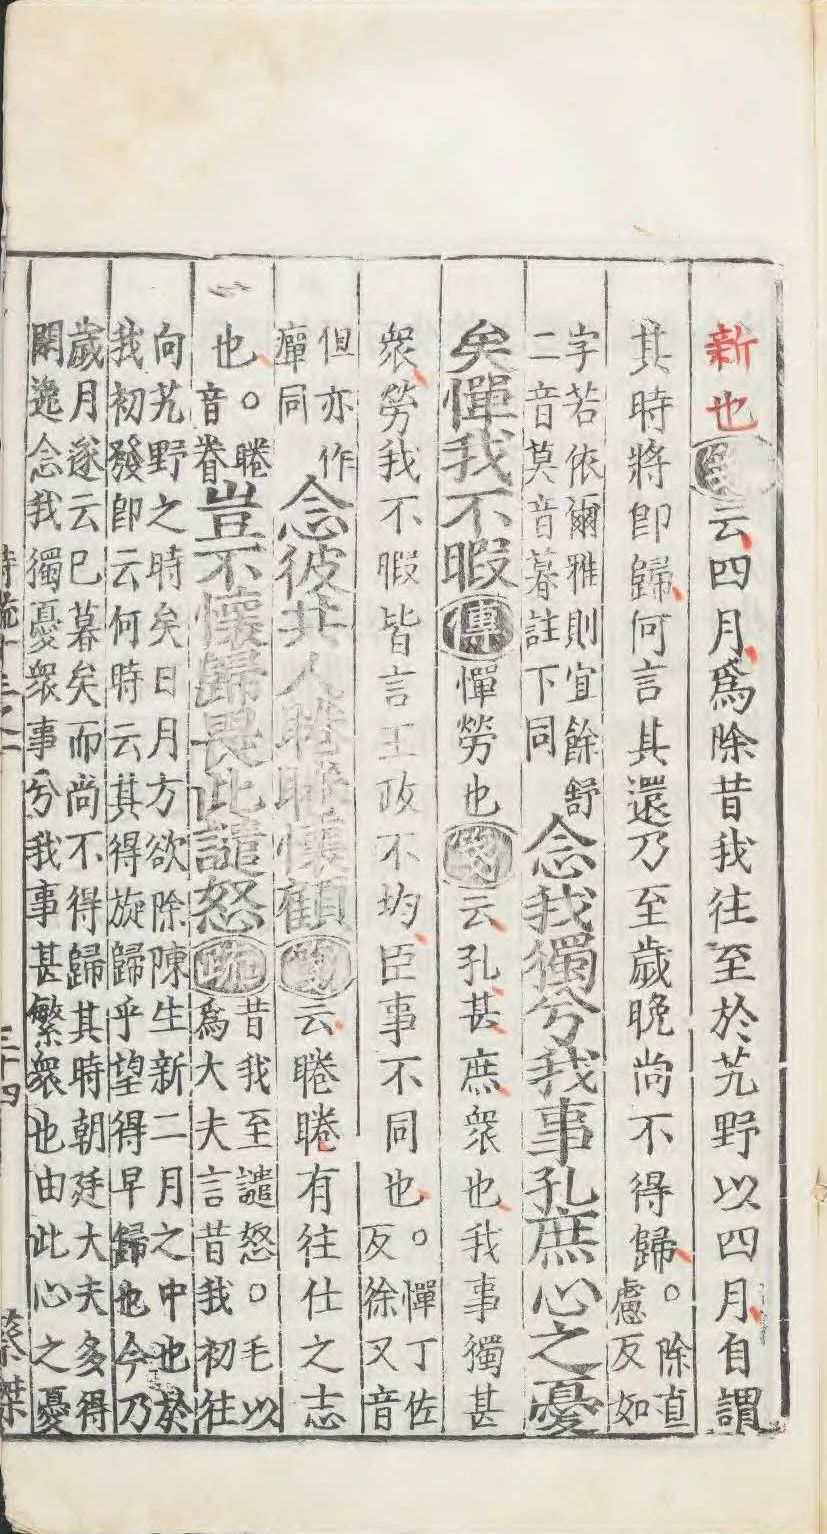 新也箋云四月爲除昔我往至於艽野以四月自謂
其時將即歸何言其還乃至歲晚尚不得歸。除直慮反如
字若依爾雅則宜餘舒二音莫音暮註下同念我獨兮我事孔庶心之憂
矣憚我不暇傳憚勞也箋云孔甚庶衆也我事獨甚
衆勞我不暇皆言王政不均臣事不同也。憚丁佐反徐又音
但亦作癉同念彼共人睠睠懷顧箋云睠睠有往仕之志
也。睠音眷豈不懷歸畏此譴怒疏昔我至譴怒。毛以爲大夫言昔我初往
向艽野之時矣日月方欲除陳生新二月之中也於
我初發即云何時云其得旋歸乎望得早歸也今乃
歲月遂云已暮矣而尚不得歸其時朝廷大夫多得
閑逸念我獨憂衆事兮我事甚繁衆也由此心之憂